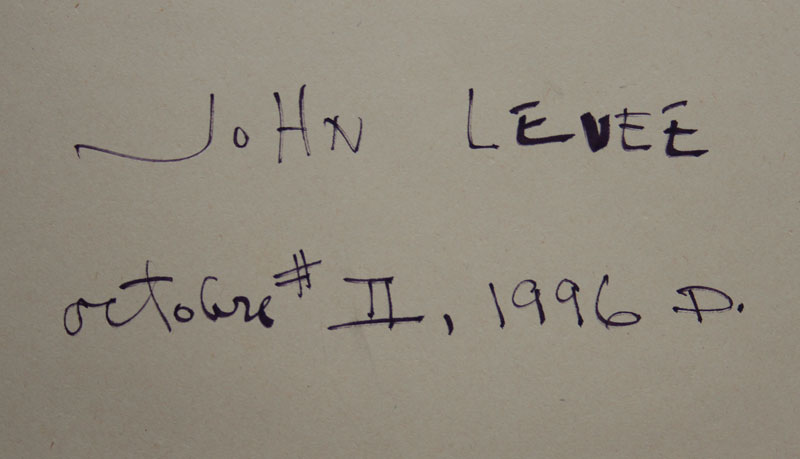 JOHN LEVEE
octobre # II, 1996 D.